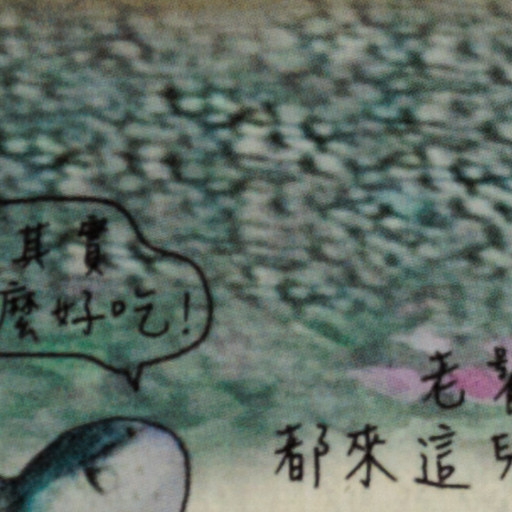 其實
麼好吃!
老
都來這